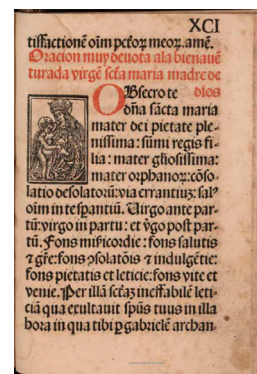 XCI
tisfactionē oīm pctōꝝ meoꝝ. amē.
Oracion muy deuota ala bienauē
turada virgē sctā maria madre de
dios
OBsecro te
dn̄a sācta maria
mater dei pietate ple-
nissima: sūmi regis fi-
lia: mater gl̄iosissima:
mater orphanoꝝ: cōso-
latio desolatorū: via errantiuʒ: salꝰ
oīm in te sperantiū. Uirgo ante par-
tū: virgo in partu: et ỽgo post par-
tū. Fons mīsericordie: fons salutis
⁊ gr̄e: fons ꝯsolatōis ⁊ indulgētie:
fons pietatis et leticie: fons vite et
venie. Per illā sctāʒ ineffabilē leti-
ciā qua exultauit spūs tuus in illa
hora in qua tibi ꝑ gabrielē archan-